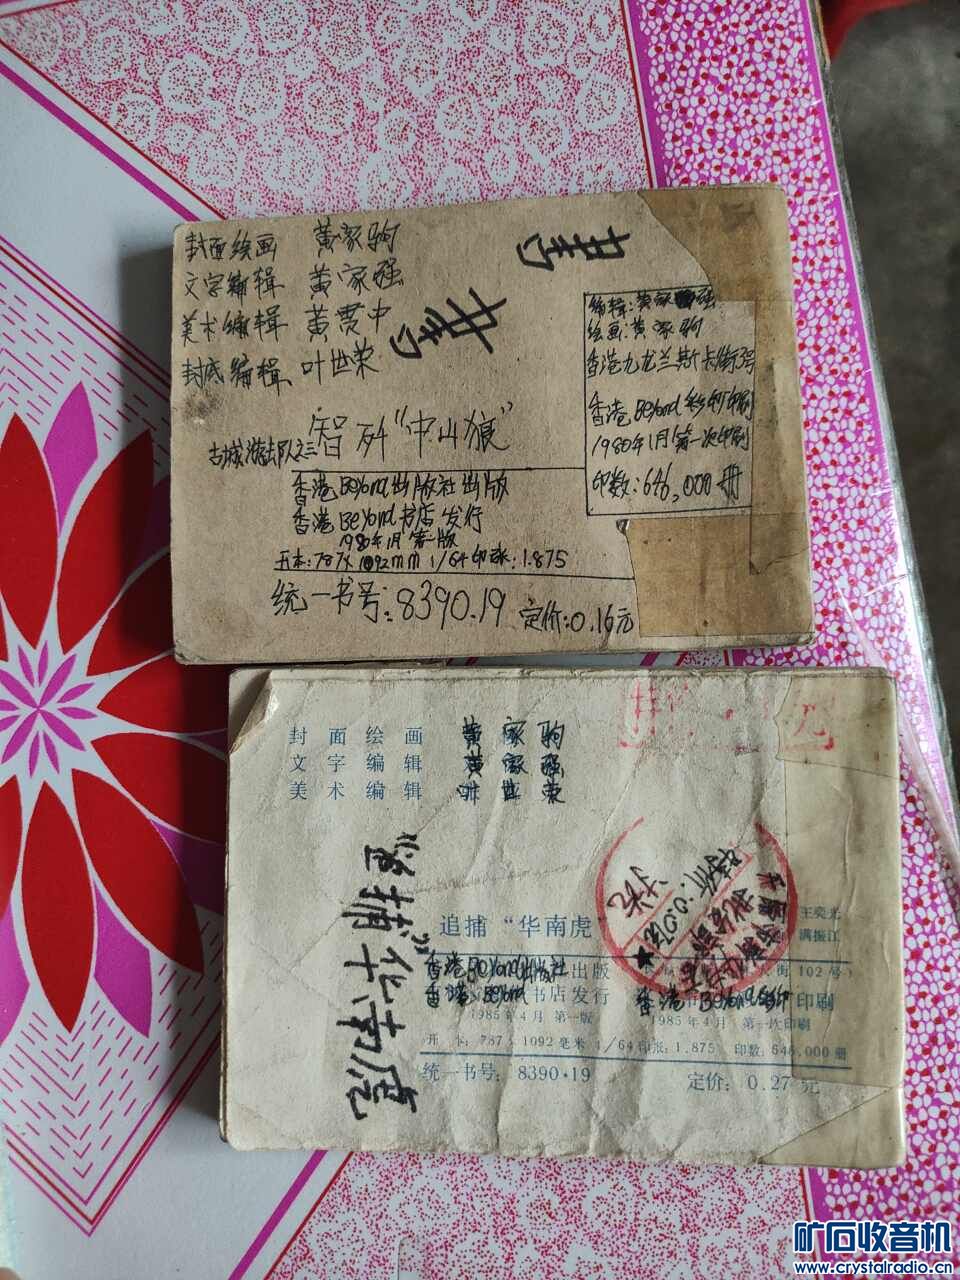 封面绘画 黄家驹
文字编辑 黄家强
美术编辑 黄贯中
封底编辑 叶世荣
古城游击队之三 智歼“中山狼”
香港Beyond出版社出版
香港Beyond书店发行
1980年1月第一版
开本:787X1092mm 1/64印张:1.875
统一书号:8390.19 定价:0.16元
编辑:黄家强
绘画:黄家驹
香港九龙兰斯卡街3号
香港Beyond彩印厂印刷
1980年1月第一次印刷
印数:646,000册
封面绘画 黄家驹
文字编辑 黄家强
美术编辑 叶世荣
追捕“华南虎”
追捕“华南虎”
王奕光
满振江
香港Beyond出版社出版
大街102号)
香港Beyond书店发行
香港Beyond彩印 印刷
1985年4月 第一版
1985年4月 第一次印刷
开本:787×1092毫米 1/64 印张:1.875 印数:646,000册
统一书号:8390·19 定价:0.27元
矿石收音机
www.crystalradio.cn